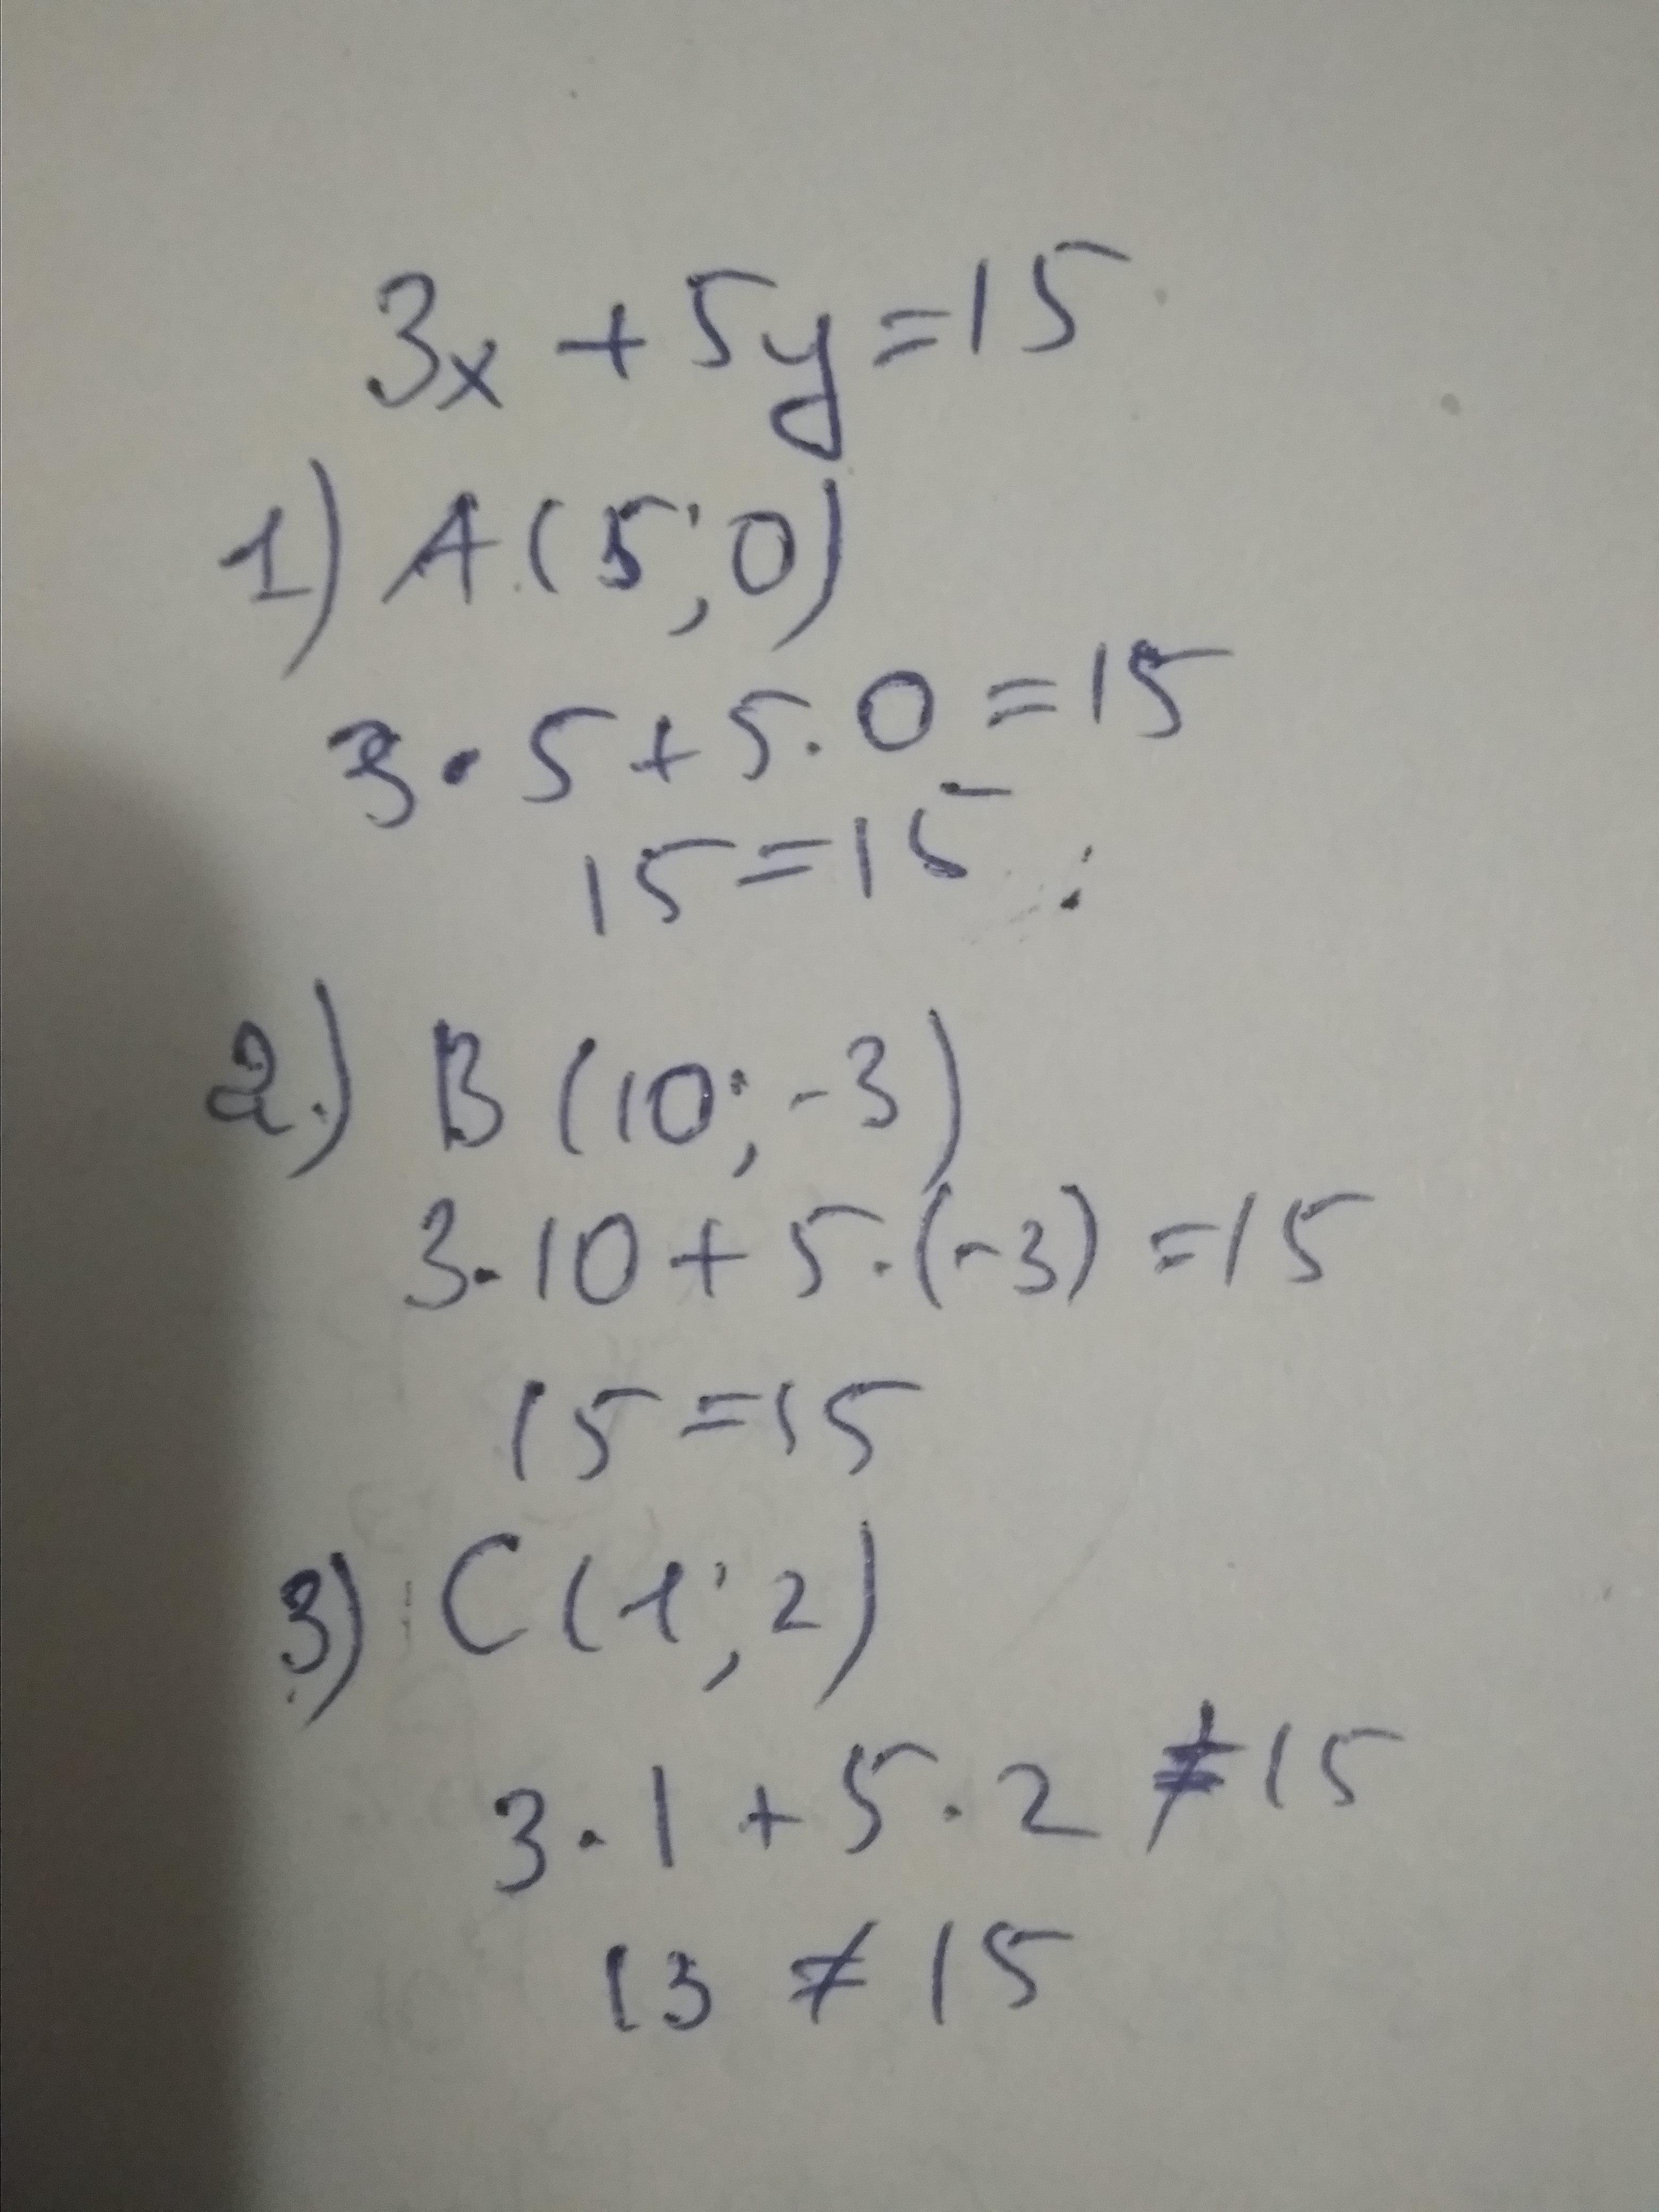 3x + 5y = 15
1) A (5; 0)
3 · 5 + 5 · 0 = 15
15 = 15
2) B (10; -3)
3 · 10 + 5 · (-3) = 15
15 = 15
3) C (1; 2)
3 · 1 + 5 · 2 ≠ 15
13 ≠ 15